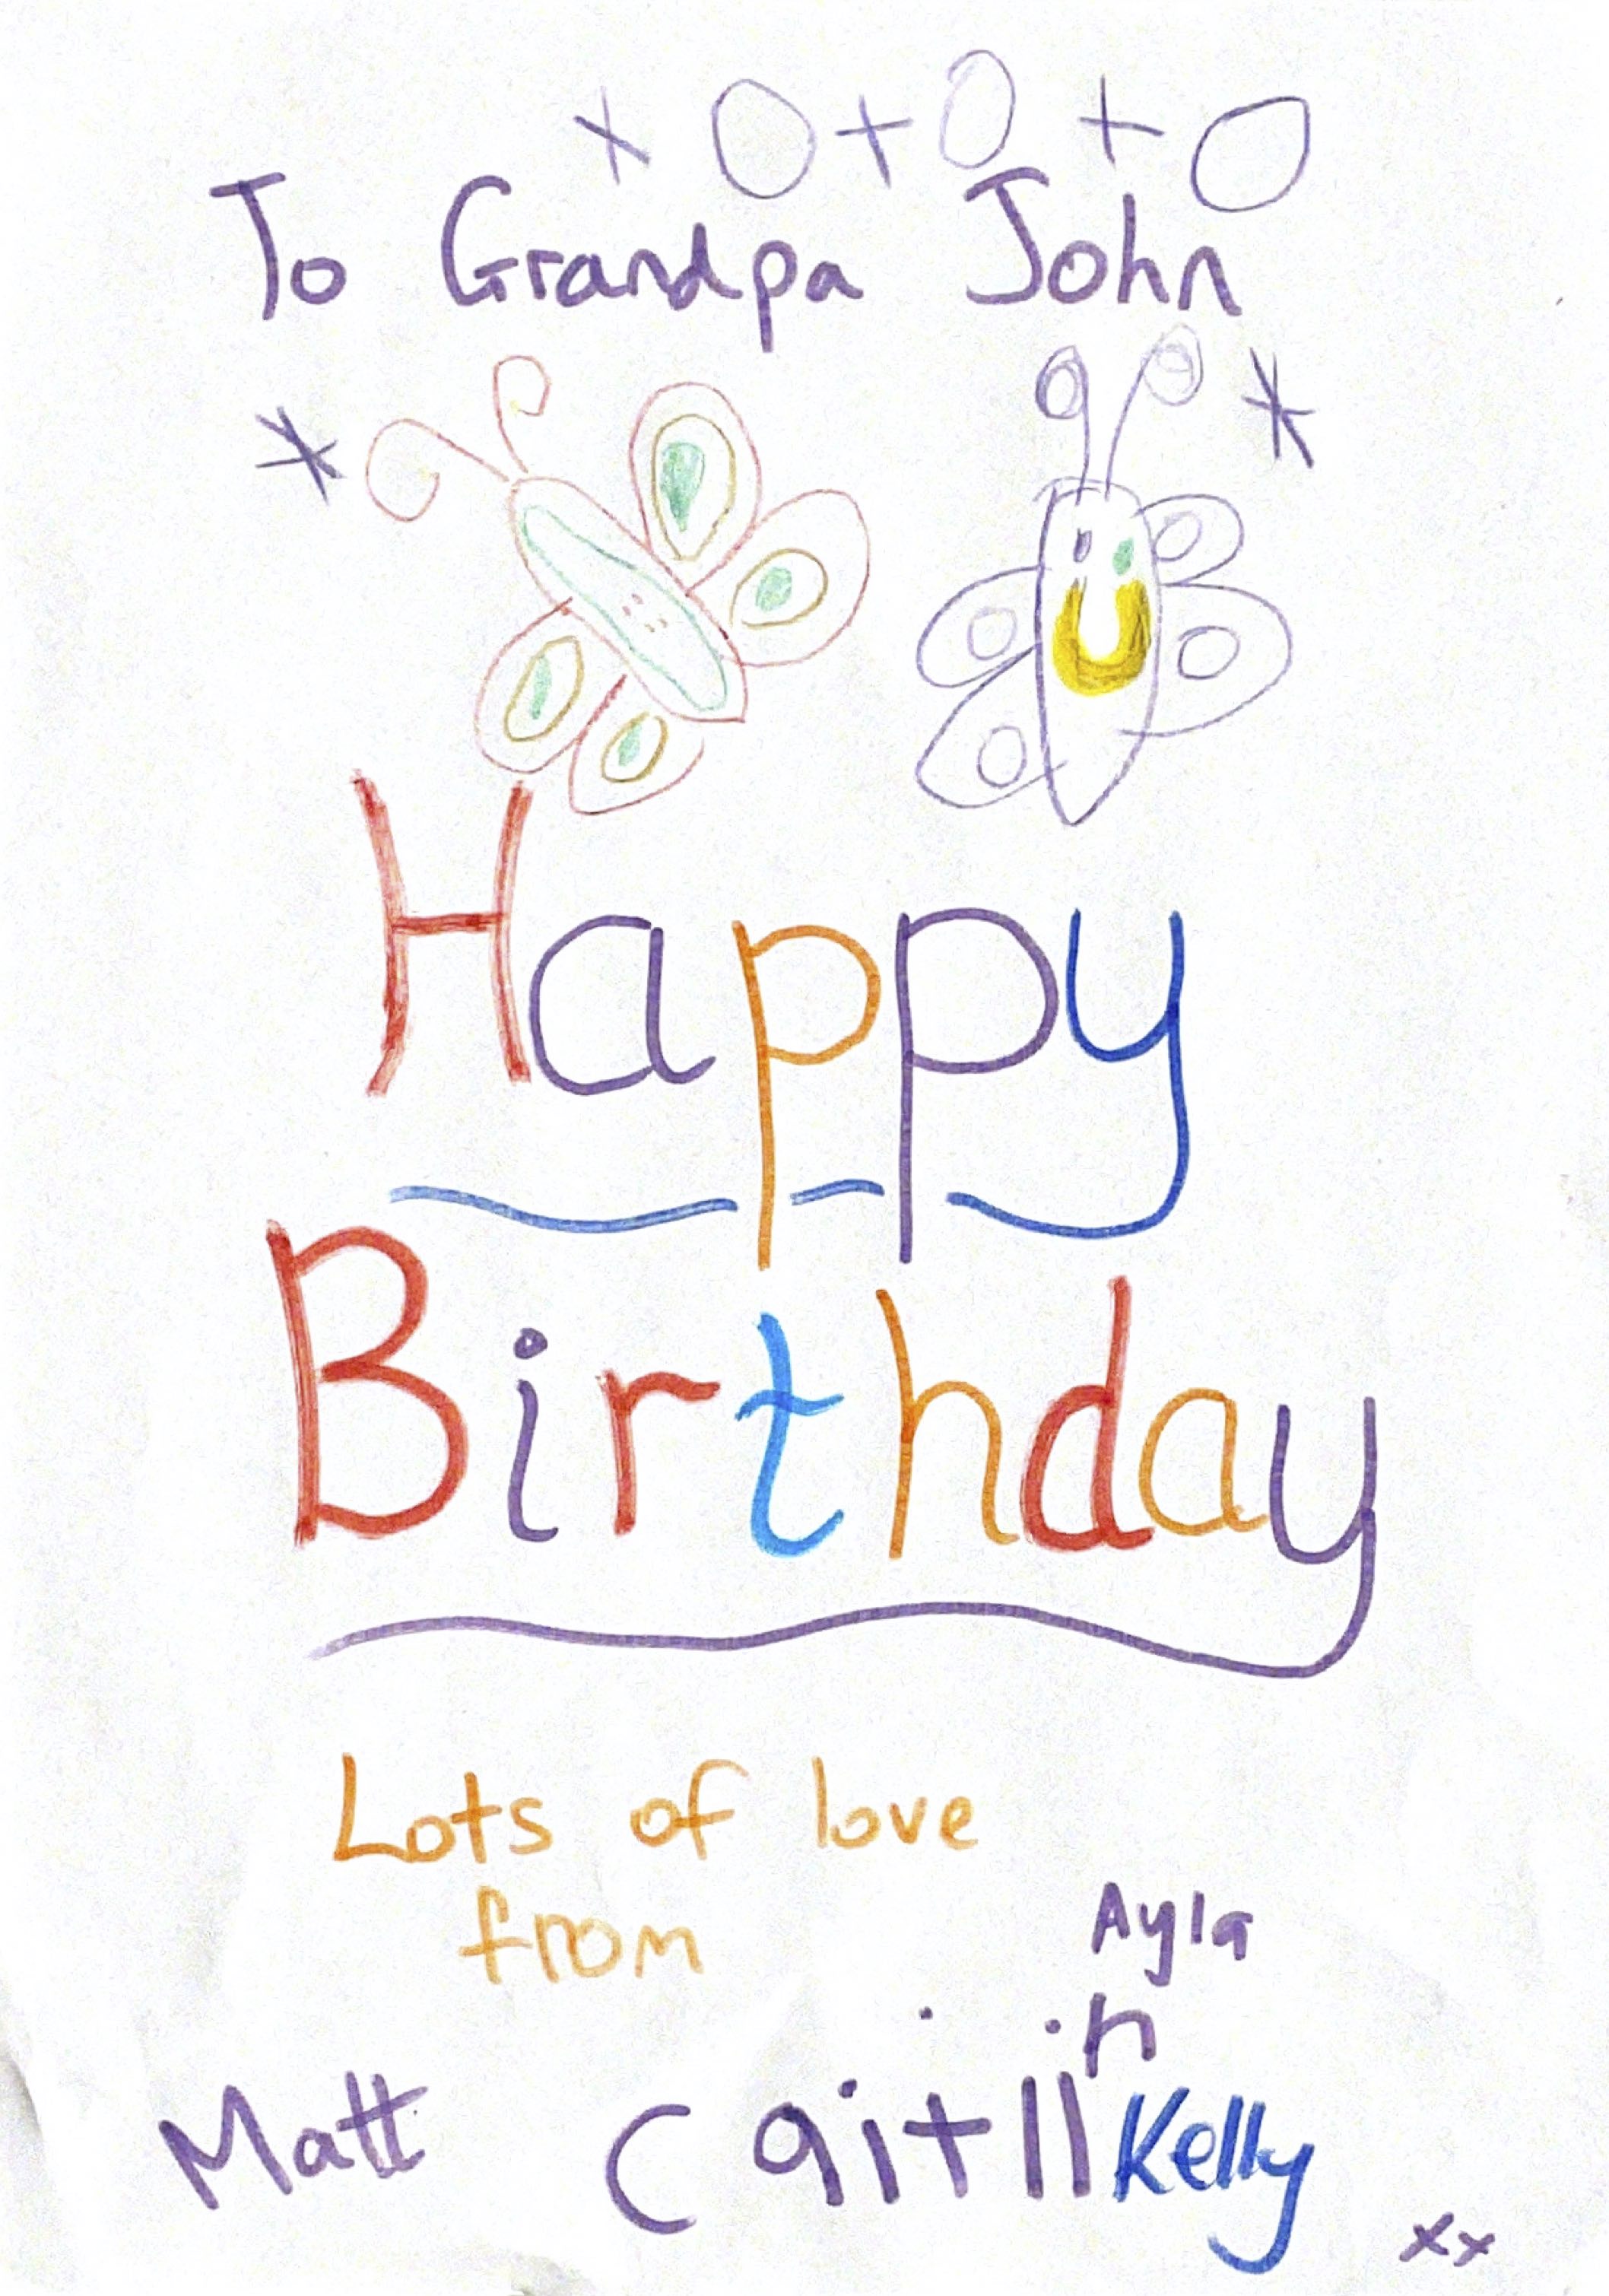 x O + O + O
To Grandpa John
Happy
Birthday
Lots of love
from
Ayla
Matt Caitlin Kelly
xx